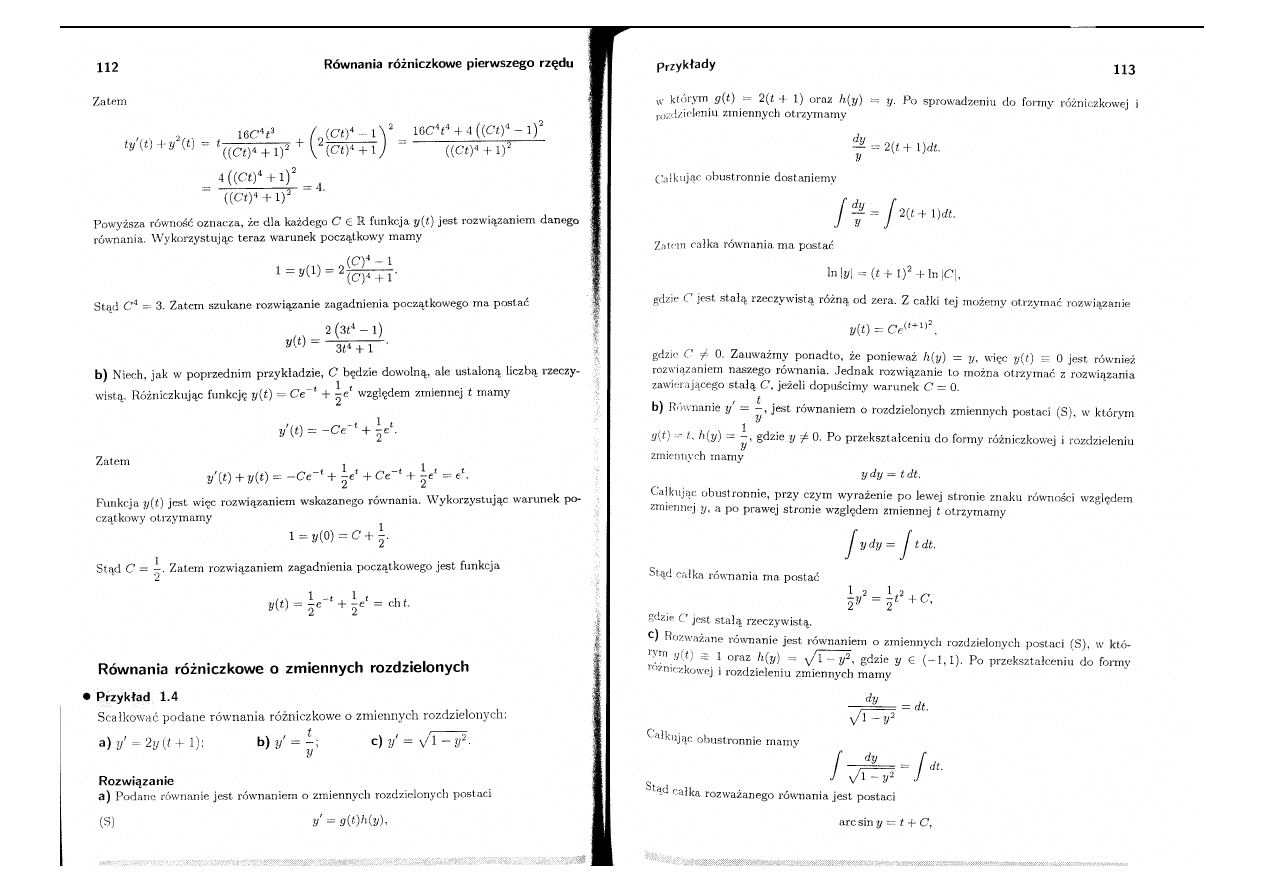 112 Równania różniczkowe pierwszego rzędu
Zatem
ty'(t) + y²(t) = t 16C⁴t³ / ((Ct)⁴ + 1)² + (2 ((Ct)⁴ − 1) / ((Ct)⁴ + 1))² = (16C⁴t⁴ + 4 ((Ct)⁴ − 1)²) / ((Ct)⁴ + 1)²
= 4 ((Ct)⁴ + 1)² / ((Ct)⁴ + 1)² = 4.
Powyższa równość oznacza, że dla każdego C ∈ ℝ funkcja y(t) jest rozwiązaniem danego
równania. Wykorzystując teraz warunek początkowy mamy
1 = y(1) = 2 ((C)⁴ − 1) / ((C)⁴ + 1).
Stąd C⁴ = 3. Zatem szukane rozwiązanie zagadnienia początkowego ma postać
y(t) = 2 (3t⁴ − 1) / (3t⁴ + 1).
b) Niech, jak w poprzednim przykładzie, C będzie dowolną, ale ustaloną liczbą rzeczy-
wistą. Różniczkując funkcję y(t) = Ce⁻ᵗ + 1/2 eᵗ względem zmiennej t mamy
y'(t) = −Ce⁻ᵗ + 1/2 eᵗ.
Zatem
y'(t) + y(t) = −Ce⁻ᵗ + 1/2 eᵗ + Ce⁻ᵗ + 1/2 eᵗ = eᵗ.
Funkcja y(t) jest więc rozwiązaniem wskazanego równania. Wykorzystując warunek po-
czątkowy otrzymamy
1 = y(0) = C + 1/2.
Stąd C = 1/2. Zatem rozwiązaniem zagadnienia początkowego jest funkcja
y(t) = 1/2 e⁻ᵗ + 1/2 eᵗ = ch t.
Równania różniczkowe o zmiennych rozdzielonych
• Przykład 1.4
Scałkować podane równania różniczkowe o zmiennych rozdzielonych:
a) y' = 2y (t + 1); b) y' = t/y; c) y' = √(1 − y²).
Rozwiązanie
a) Podane równanie jest równaniem o zmiennych rozdzielonych postaci
(S) y' = g(t)h(y),
Przykłady 113
w którym g(t) = 2(t + 1) oraz h(y) = y. Po sprowadzeniu do formy różniczkowej i
rozdzieleniu zmiennych otrzymamy
dy/y = 2(t + 1)dt.
Całkując obustronnie dostaniemy
∫ dy/y = ∫ 2(t + 1)dt.
Zatem całka równania ma postać
ln |y| = (t + 1)² + ln |C|,
gdzie C jest stałą rzeczywistą różną od zera. Z całki tej możemy otrzymać rozwiązanie
y(t) = Ce^((t+1)²),
gdzie C ≠ 0. Zauważmy ponadto, że ponieważ h(y) = y, więc y(t) ≡ 0 jest również
rozwiązaniem naszego równania. Jednak rozwiązanie to można otrzymać z rozwiązania
zawierającego stałą C, jeżeli dopuścimy warunek C = 0.
b) Równanie y' = t/y, jest równaniem o rozdzielonych zmiennych postaci (S), w którym
g(t) = t, h(y) = 1/y, gdzie y ≠ 0. Po przekształceniu do formy różniczkowej i rozdzieleniu
zmiennych mamy
y dy = t dt.
Całkując obustronnie, przy czym wyrażenie po lewej stronie znaku równości względem
zmiennej y, a po prawej stronie względem zmiennej t otrzymamy
∫ y dy = ∫ t dt.
Stąd całka równania ma postać
1/2 y² = 1/2 t² + C,
gdzie C jest stałą rzeczywistą.
c) Rozważane równanie jest równaniem o zmiennych rozdzielonych postaci (S), w któ-
rym g(t) ≡ 1 oraz h(y) = √(1 − y²), gdzie y ∈ (−1, 1). Po przekształceniu do formy
różniczkowej i rozdzieleniu zmiennych mamy
dy / √(1 − y²) = dt.
Całkując obustronnie mamy
∫ dy / √(1 − y²) = ∫ dt.
Stąd całka rozważanego równania jest postaci
arc sin y = t + C,